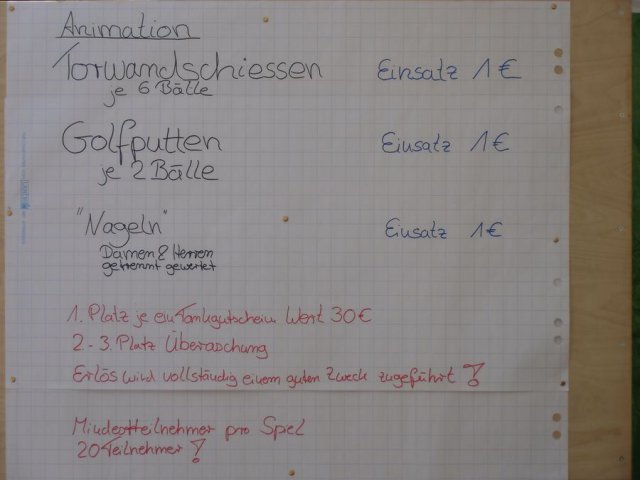 Animation
Torwandschiessen Einsatz 1€
je 6 Bälle
Golfputten Einsatz 1€
je 2 Bälle
"Nageln" Einsatz 1€
Damen & Herren
getrennt gewertet
1. Platz je ein Tankgutschein Wert 30€
2.-3. Platz Überaschung
Erlös wird vollständig einem guten Zweck zugeführt!
Mindestteilnehmer pro Spel
20 Teilnehmer!